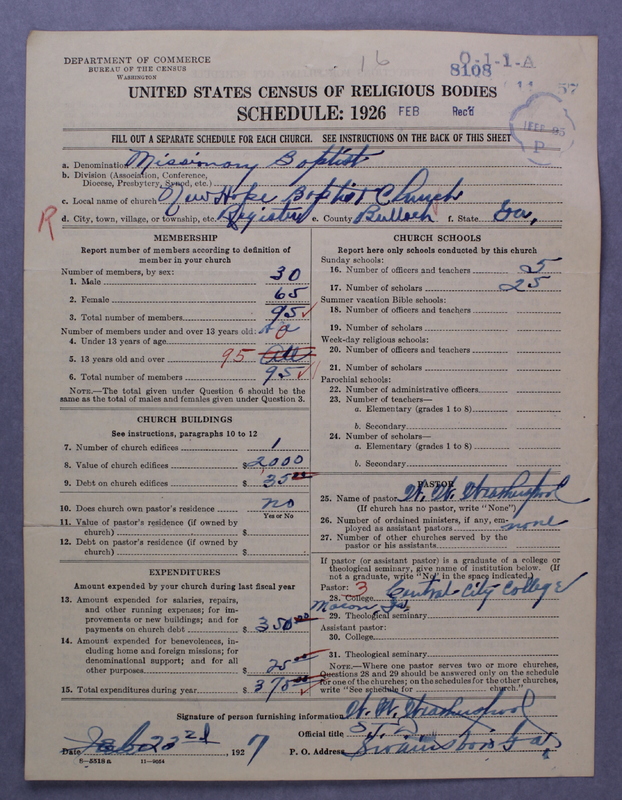 DEPARTMENT OF COMMERCE
BUREAU OF THE CENSUS
WASHINGTON
16
O-1-1-A
8108
UNITED STATES CENSUS OF RELIGIOUS BODIES
SCHEDULE: 1926 FEB Rec'd
FILL OUT A SEPARATE SCHEDULE FOR EACH CHURCH. SEE INSTRUCTIONS ON THE BACK OF THIS SHEET
P
a. Denomination Missionary Baptist
b. Division (Association, Conference,
Diocese, Presbytery, Synod, etc.)
c. Local name of church New Hope Baptist Church
R
d. City, town, village, or township, etc. Register e. County Bulloch f. State Ga.
MEMBERSHIP
Report number of members according to definition of
member in your church
Number of members, by sex:
1. Male 30
2. Female 65
3. Total number of members 95
Number of members under and over 13 years old:
4. Under 13 years of age
5. 13 years old and over 95 All
6. Total number of members 95
NOTE.—The total given under Question 6 should be the
same as the total of males and females given under Question 3.
CHURCH BUILDINGS
See instructions, paragraphs 10 to 12
7. Number of church edifices 1
8. Value of church edifices $2000
9. Debt on church edifices $35.00
10. Does church own pastor's residence no
Yes or No
11. Value of pastor's residence (if owned by
church) $
12. Debt on pastor's residence (if owned by
church) $
EXPENDITURES
Amount expended by your church during last fiscal year
13. Amount expended for salaries, repairs,
and other running expenses; for im-
provements or new buildings; and for
payments on church debt $350.00
14. Amount expended for benevolences, in-
cluding home and foreign missions; for
denominational support; and for all
other purposes $25.00
15. Total expenditures during year $375.00
CHURCH SCHOOLS
Report here only schools conducted by this church
Sunday schools:
16. Number of officers and teachers 5
17. Number of scholars 25
Summer vacation Bible schools:
18. Number of officers and teachers
19. Number of scholars
Week-day religious schools:
20. Number of officers and teachers
21. Number of scholars
Parochial schools:
22. Number of administrative officers
23. Number of teachers—
a. Elementary (grades 1 to 8)
b. Secondary
24. Number of scholars—
a. Elementary (grades 1 to 8)
b. Secondary
PASTOR
25. Name of pastor W. W.
(If church has no pastor, write "None")
26. Number of ordained ministers, if any, em-
ployed as assistant pastors none
27. Number of other churches served by the
pastor or his assistants
If pastor (or assistant pastor) is a graduate of a college or
theological seminary, give name of institution below. (If
not a graduate, write "No" in the space indicated.)
Pastor: 3
28. College Central City College
Macon Ga.
29. Theological seminary
Assistant pastor:
30. College
31. Theological seminary
NOTE.—Where one pastor serves two or more churches,
Questions 28 and 29 should be answered only on the schedule
for one of the churches; on the schedules for the other churches,
write "See schedule for church."
Signature of person furnishing information W. W.
Official title
Date Feb. 22nd, 1927 P. O. Address Swainsboro Ga.
8—5518a 11—9054